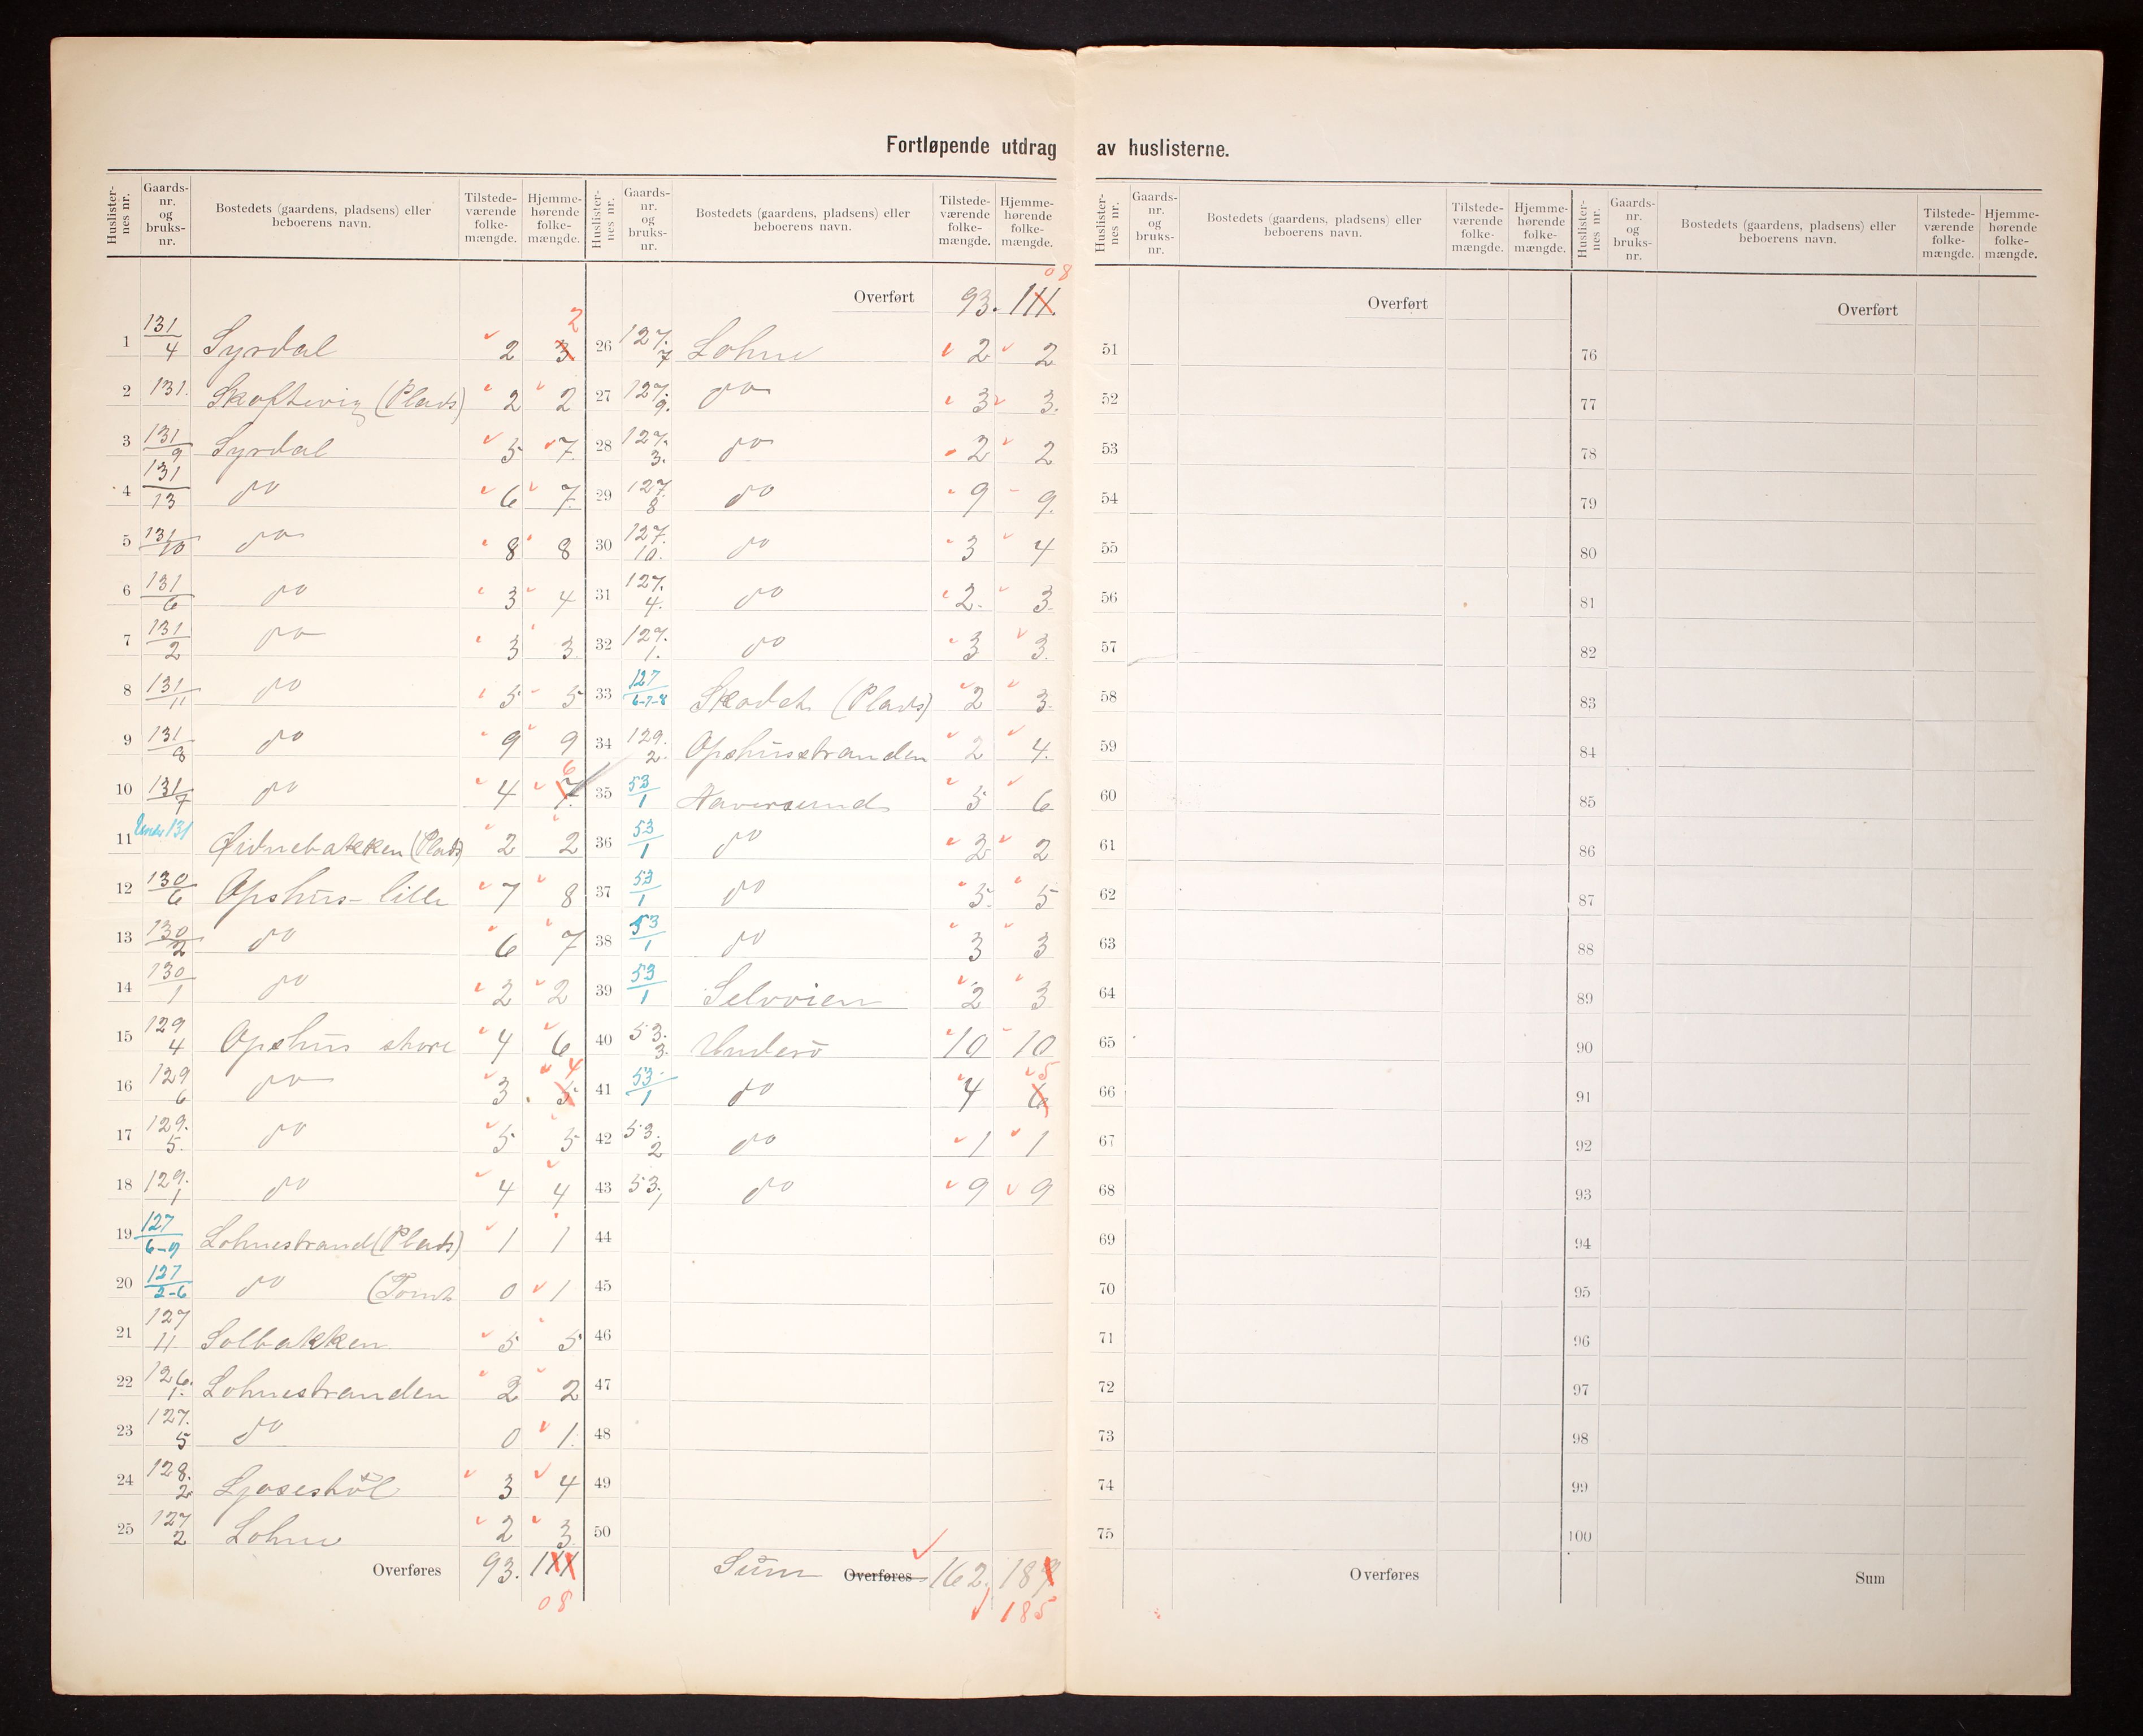 Fortløpende utdrag av huslisterne.
Huslister-nes nr. | Gaards-nr. og bruks-nr. | Bostedets (gaardens, pladsens) eller beboerens navn. | Tilstede-værende folke-mængde. | Hjemme-hørende folke-mængde.
1 131/4 Syrdal 2 3 2
2 131. Skoftevig (Plads) 2 2
3 131/9 Syrdal 5 7
4 131/13 do 6 7
5 131/10 do 8 8
6 131/6 do 3 4
7 131/2 do 3 3
8 131/11 do 5 5
9 131/8 do 9 9
10 131/7 do 4 7 6
11 Under 131 Øidnebakken (Plads) 2 2
12 130/6 Opshus lille 7 8
13 130/2 do 6 7
14 130/1 do 2 2
15 129/4 Opshus store 4 6
16 129/6 do 3 5 4
17 129/5 do 5 5
18 129/1 do 4 4
19 127/6-9 Lohnestrand (Plads) 1 1
20 127/2-6 do (Tomt 0 1
21 127/11 Solbakken 5 5
22 126/1 Lohnestranden 2 2
23 127/5 do 0 1
24 128/2 3 4
25 127/2 Lohne 2 3
Overføres 93. 111 08
Huslister-nes nr. | Gaards-nr. og bruks-nr. | Bostedets (gaardens, pladsens) eller beboerens navn. | Tilstede-værende folke-mængde. | Hjemme-hørende folke-mængde.
Overført 93. 111. 08
26 127/7 Lohne 2 2
27 127/9 do 3 3.
28 127/3 do 2 2
29 127/8 do 9 9.
30 127/10 do 3 4
31 127/4 do 2. 3
32 127/1 do 3 3.
33 127/6-7-8 (Plads) 2 3
34 129/2 Opshusstranden 2 4.
35 53/1 Haversund 5 6
36 53/1 do 2 2
37 53/1 do 5 5
38 53/1 do 3 3
39 53/1 Selvvien 2 3
40 53/3 Underø 10 10
41 53/1 do 4 6 5
42 53/2 do 1 1
43 53/1 do 9 9
44
45
46
47
48
49
50
Sum Overføres 162. 189 185
Huslister-nes nr. | Gaards-nr. og bruks-nr. | Bostedets (gaardens, pladsens) eller beboerens navn. | Tilstede-værende folke-mængde. | Hjemme-hørende folke-mængde.
Overført
51
52
53
54
55
56
57
58
59
60
61
62
63
64
65
66
67
68
69
70
71
72
73
74
75
Overføres
Huslister-nes nr. | Gaards-nr. og bruks-nr. | Bostedets (gaardens, pladsens) eller beboerens navn. | Tilstede-værende folke-mængde. | Hjemme-hørende folke-mængde.
Overført
76
77
78
79
80
81
82
83
84
85
86
87
88
89
90
91
92
93
94
95
96
97
98
99
100
Sum